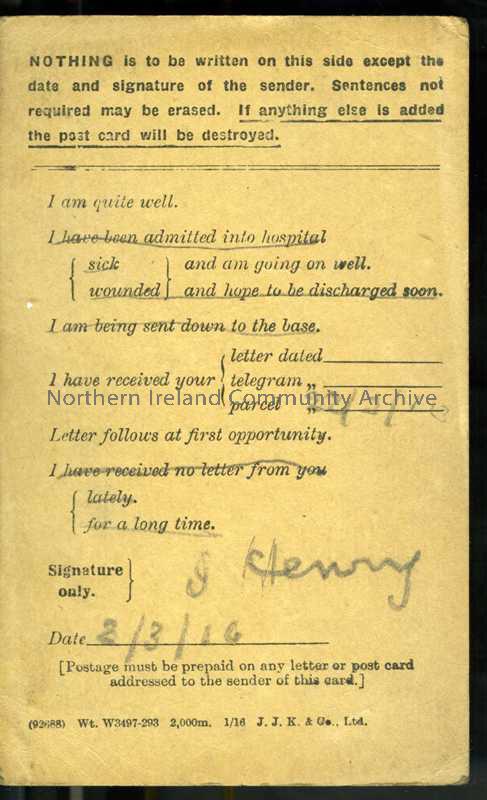 NOTHING is to be written on this side except the
date and signature of the sender. Sentences not
required may be erased. If anything else is added
the post card will be destroyed.
I am quite well.
I have been admitted into hospital
{ sick } and am going on well.
{ wounded } and hope to be discharged soon.
I am being sent down to the base.
letter dated
I have received your { telegram „
Northern Ireland Community Archive
parcel „
Letter follows at first opportunity.
I have received no letter from you
{ lately.
for a long time.
Signature
only. } J Henry
Date 2/3/16
[Postage must be prepaid on any letter or post card
addressed to the sender of this card.]
(92688) Wt. W3497-293 2,000m. 1/16 J. J. K. & Co., Ltd.